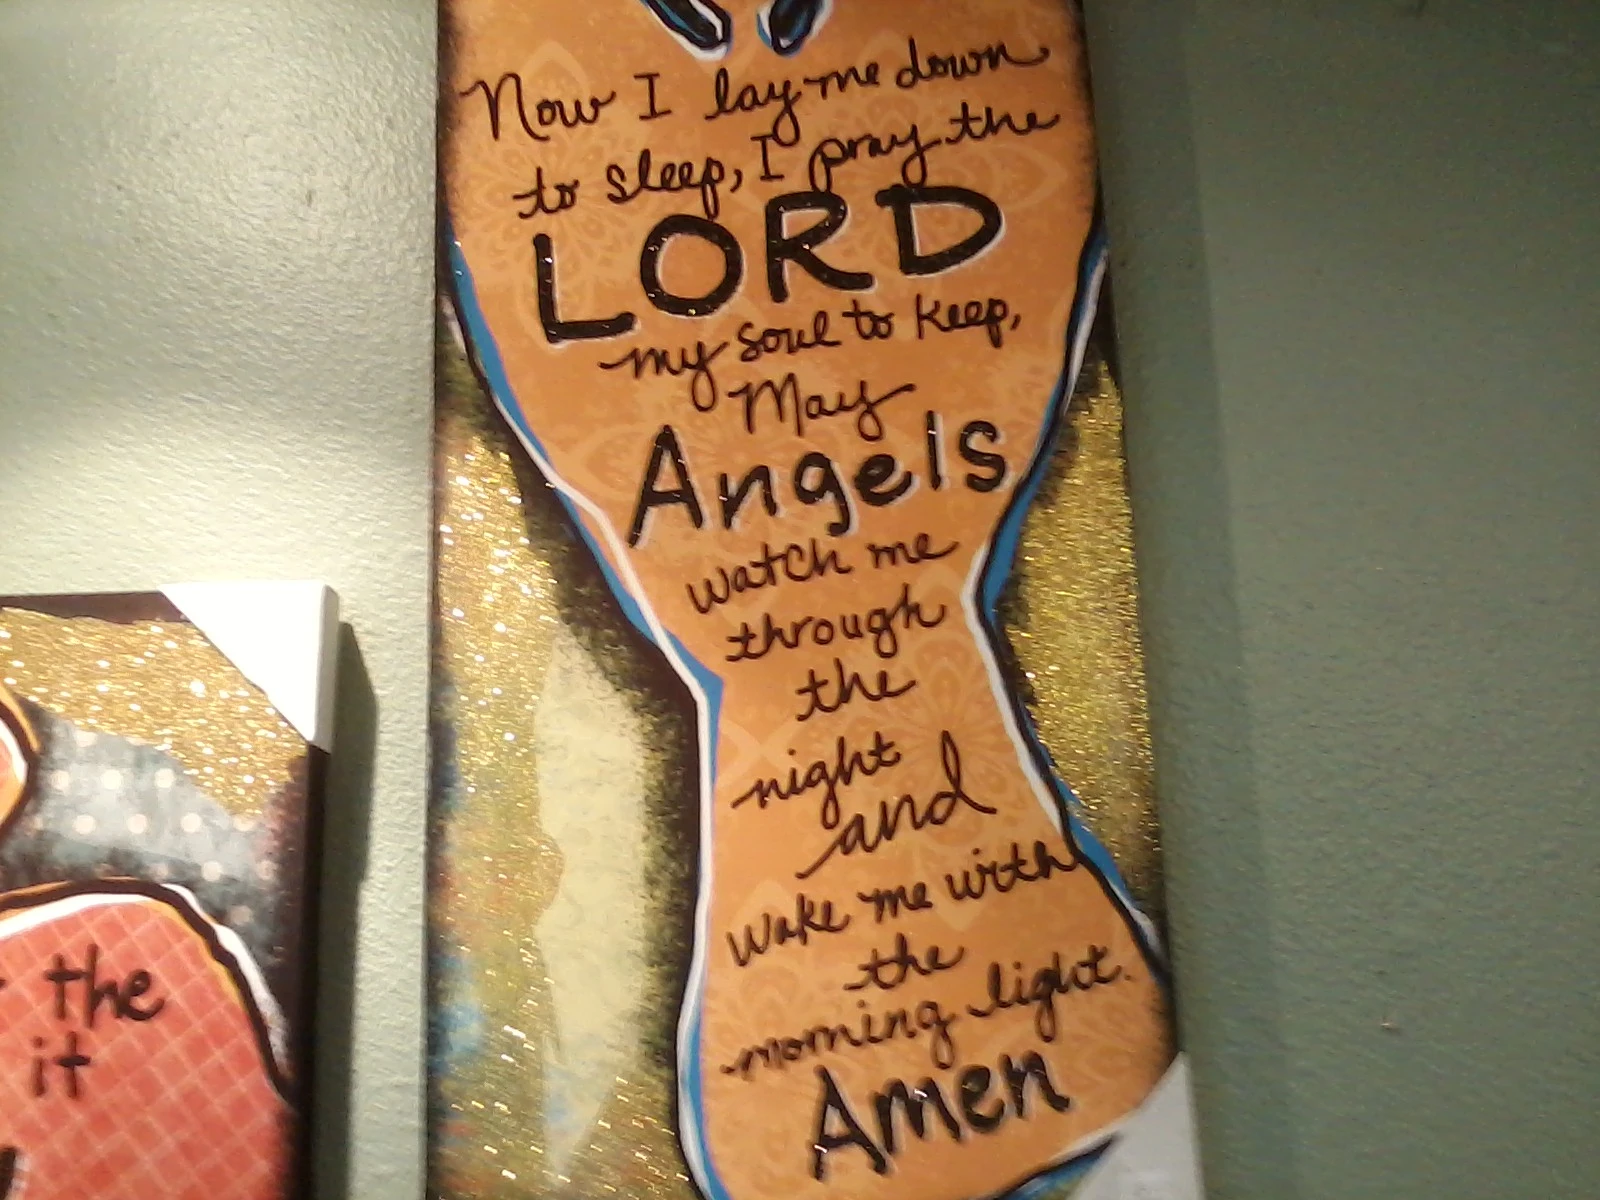 Now I lay me down
to sleep, I pray the
LORD
my soul to keep,
May
Angels
watch me
through
the
night
and
wake me with
the
morning light.
Amen
the
it